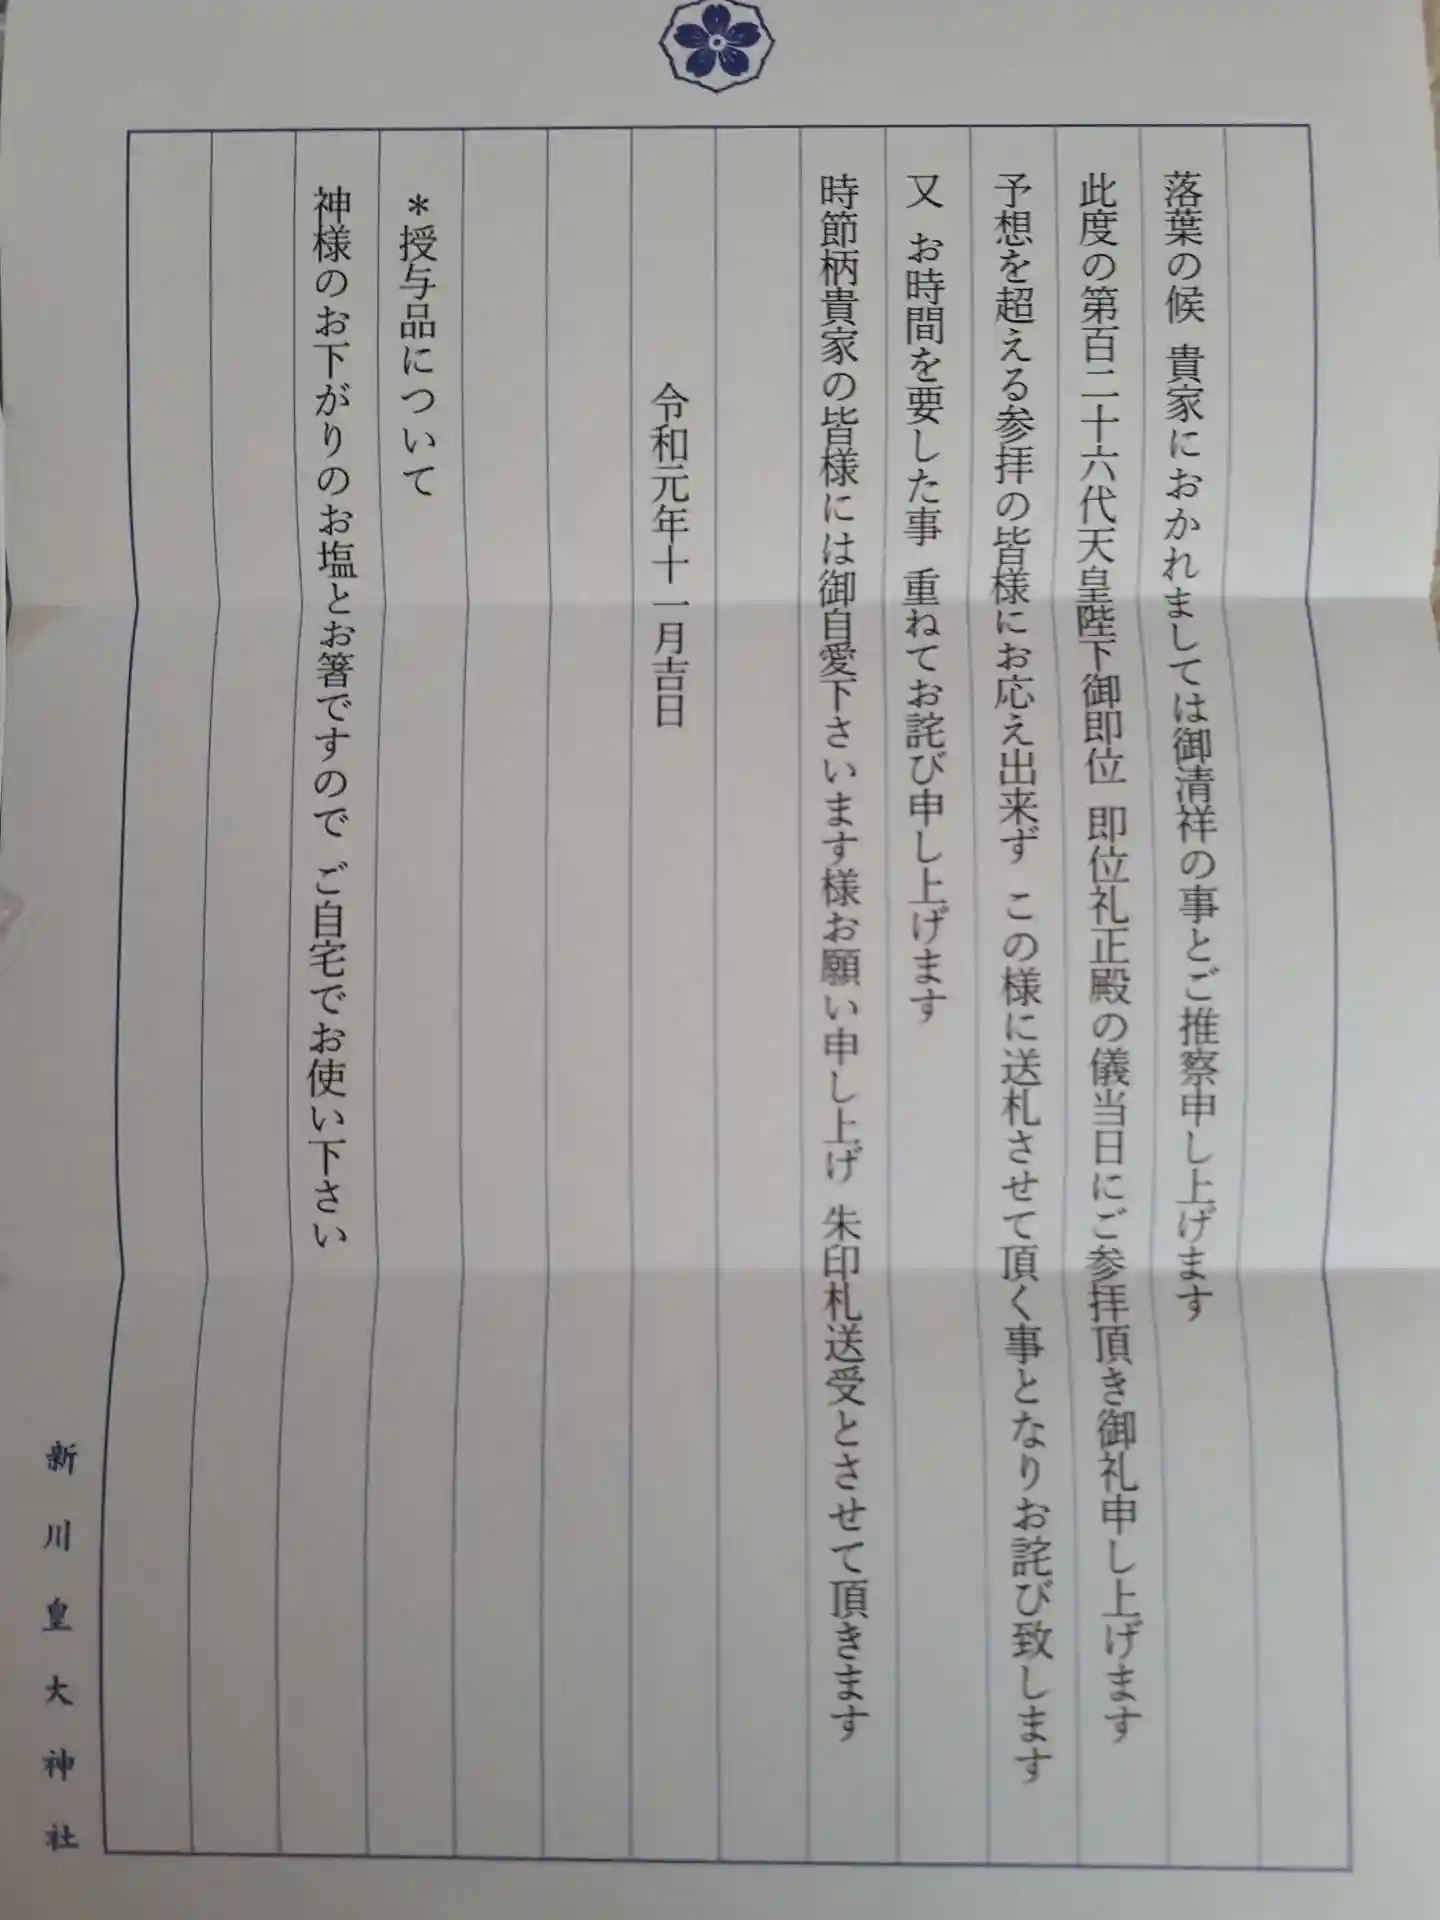 落葉の候 貴家におかれましては御清祥の事とご推察申し上げます
此度の第百二十六代天皇陛下御即位 即位礼正殿の儀当日にご参拝頂き御礼申し上げます
予想を超える参拝の皆様にお応え出来ず この様に送札させて頂く事となりお詫び致します
又 お時間を要した事 重ねてお詫び申し上げます
時節柄貴家の皆様には御自愛下さいます様お願い申し上げ 朱印札送受とさせて頂きます
令和元年十一月吉日
＊授与品について
神様のお下がりのお塩とお箸ですので ご自宅でお使い下さい
新川皇大神社